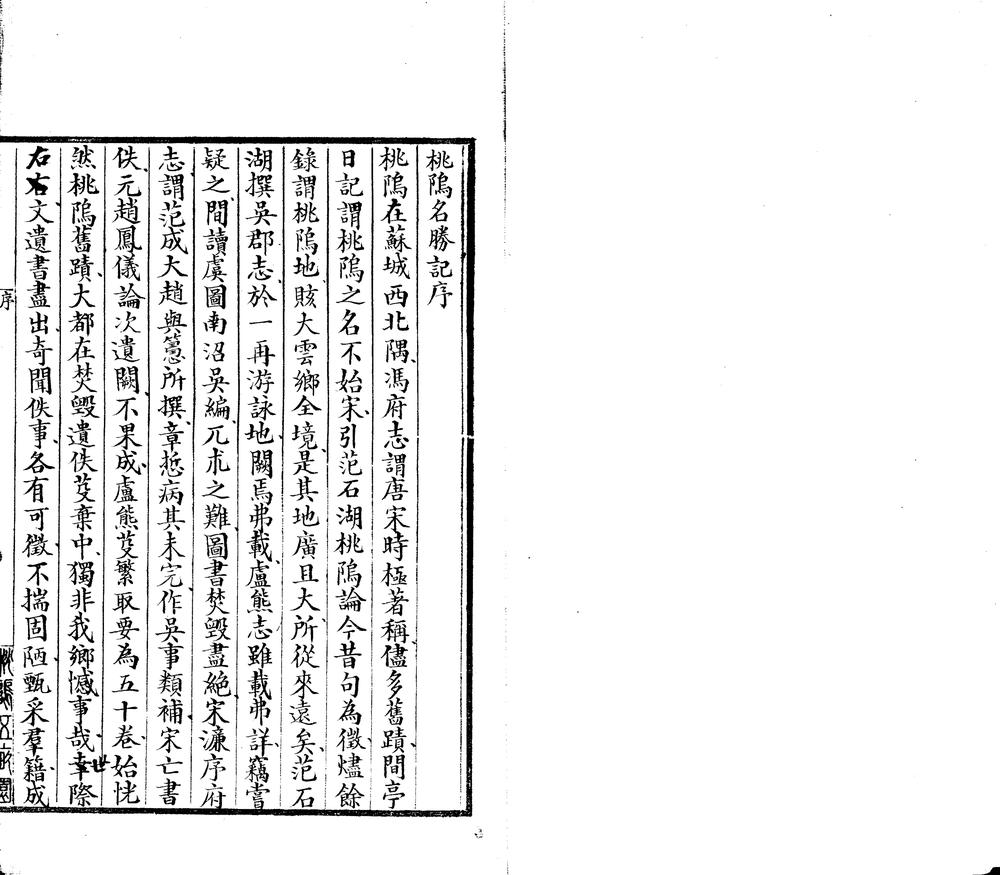 桃隖名勝記序
桃隖在蘇城西北隅馮府志謂唐宋時極著稱儘多舊蹟間亭
日記謂桃隖之名不始宋引范石湖桃隖論今昔句為徵燼餘
錄謂桃隖地賅大雲鄉全境是其地廣且大所從來遠矣范石
湖撰吳郡志於一再游詠地闕焉弗載盧熊志雖載弗詳竊嘗
疑之間讀虞圖南沼吳編兀朮之難圖書焚毀盡絕宋濂序府
志謂范成大趙與𥲅所撰章悊病其未完作吳事類補宋亡書
佚元趙鳳儀論次遺闕不果成盧熊芟繁取要為五十卷始恍
然桃隖舊蹟大都在焚毀遺佚芟棄中獨非我鄉憾事哉幸際
世
右右文遺書盡出奇聞佚事各有可徵不揣固陋甄采羣籍成
序